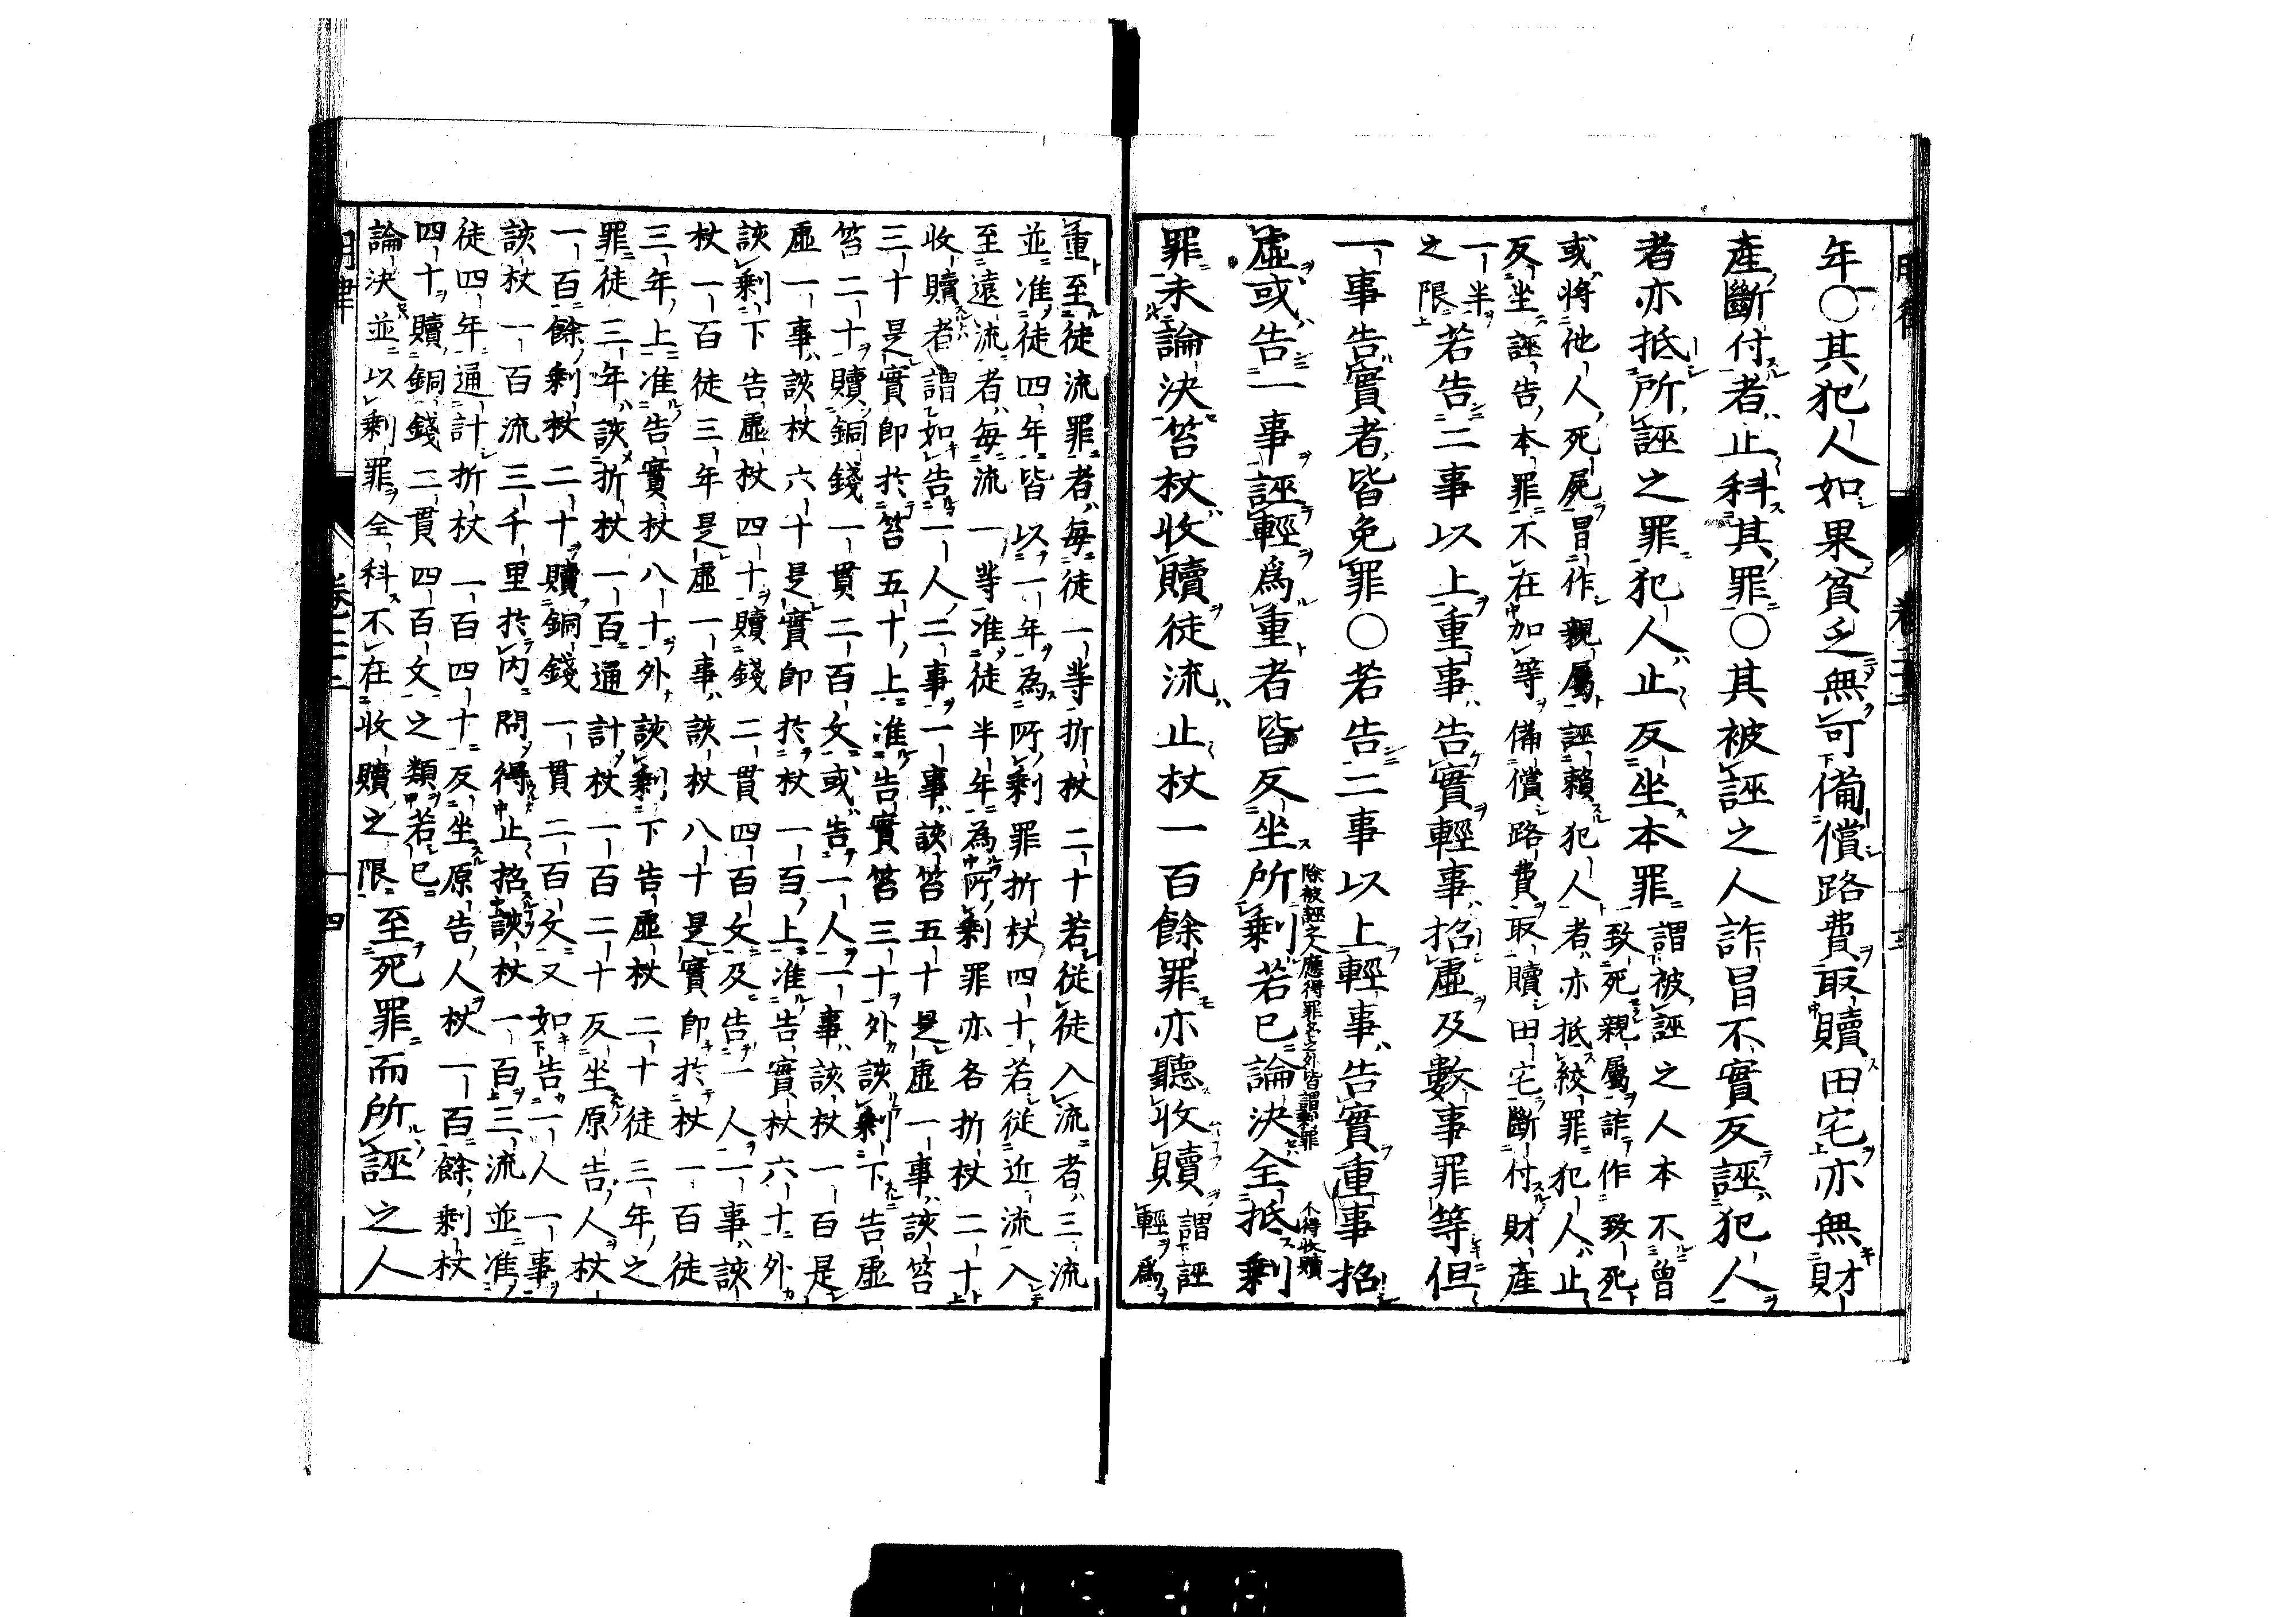 年○其犯人如果貧乏無可備償路費取贖田宅亦無財
產斷付者止科其罪○其被誣之人詐冒不實反誣犯人
者亦抵所誣之罪犯人止反坐本罪謂被誣之人本不曾
致死親屬詐作致死
或將他人死屍冒作親屬誣賴犯人者亦抵絞罪犯人止
反坐誣告本罪不在加等備償路費取贖田宅斷付財產
一半
之限若告二事以上重事告實輕事招虛及數事罪等但
一事告實者皆免罪○若告二事以上輕事告實重事招
虛或告一事誣輕爲重者皆反坐所剩
除被誣之人應得罪名之外皆謂剩罪
若已論決全抵剩
不得收贖
罪未論決笞杖收贖徒流止杖一百餘罪亦聽收贖謂誣
輕爲
重至徒流罪者每徒一等折杖二十若從徒入流者三流
並准徒四年皆以一年為所剩罪折杖四十若從近流入
至遠流者每流一等准徒半年為所剩罪亦各折杖二十
收贖者謂如告一人二事一事該笞五十是虛一事該笞
三十是實即於笞五十上准告實笞三十外該剩下告虛
笞二十贖銅錢一貫二百文或告一人一事該杖一百是
虛一事該杖六十是實即於杖一百上准告實杖六十外
該剩下告虛杖四十贖錢二貫四百文及告一人一事該
杖一百徒三年是虛一事該杖八十是實即於杖一百徒
三年上准告實杖八十外該剩下告虛杖二十徒三年之
罪徒三年該折杖一百通計杖一百二十反坐原告人杖
一百餘剩杖二十贖銅錢一貫二百文又如告一人一事
該杖一百流三千里於內問得止招該杖一百三流並准
徒四年通計折杖一百四十反坐原告人杖一百餘剩杖
四十贖銅錢二貫四百文之類若已
論決並以剩罪全科不在收贖之限至死罪而所誣之人
明律
卷二十二
四